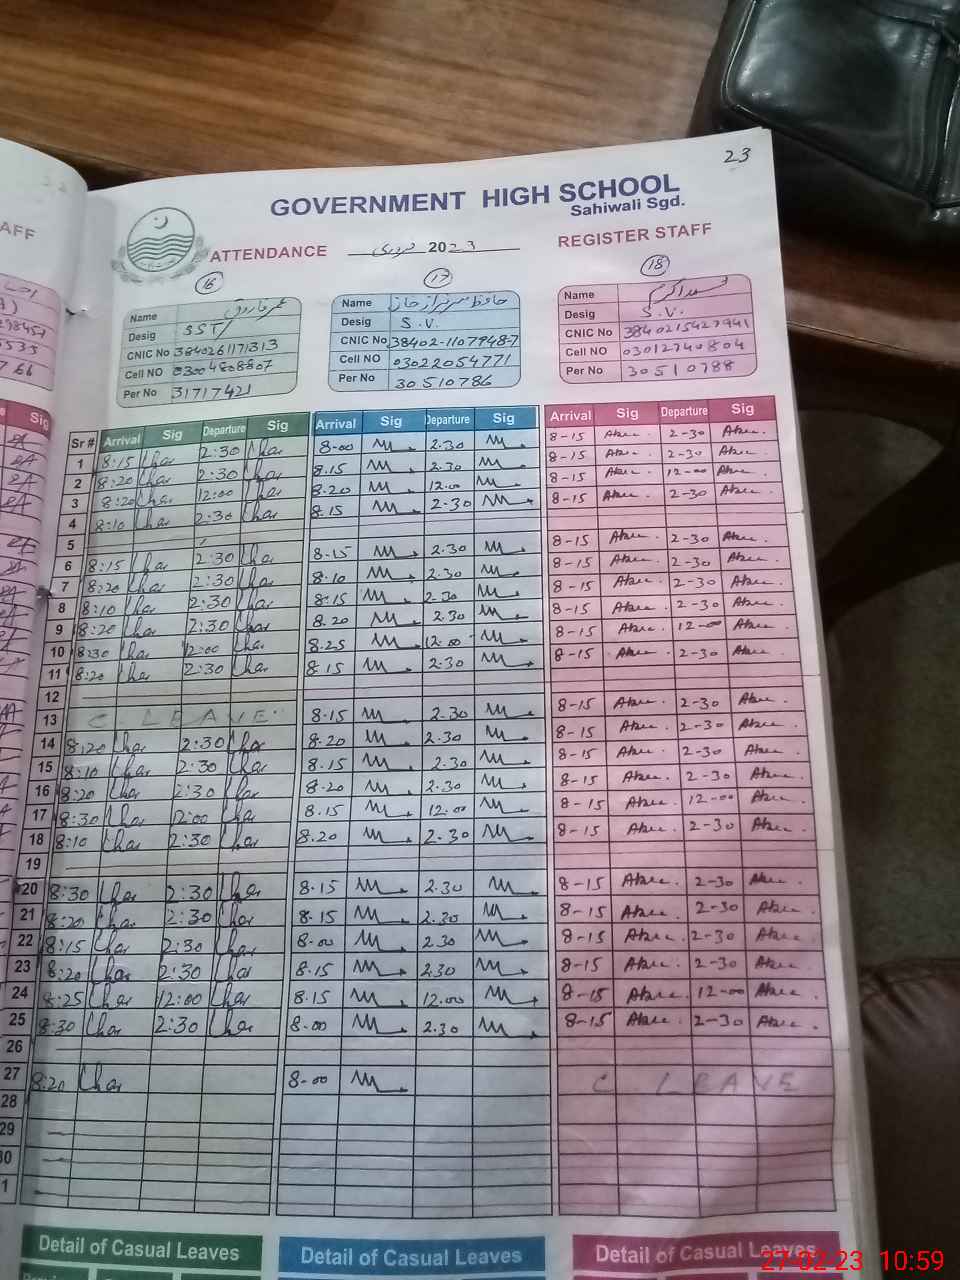 23
GOVERNMENT HIGH SCHOOL
Sahiwali Sgd.
AFF
ATTENDANCE فروری 2023 REGISTER STAFF
16 17 18
Name عمر فاروق
Desig SST
CNIC No 3840261171313
Cell NO 03004808807
Per No 31717421
Name حافظ سرفراز
Desig S.V.
CNIC No 38402-1107948-7
Cell NO 03022054771
Per No 30510786
Name محمد اکرم
Desig S.V.
CNIC No 3840215427941
Cell NO 03012740804
Per No 30510788
Sr # Arrival Sig Departure Sig Arrival Sig Departure Sig Arrival Sig Departure Sig
1 8:15 2:30 8-00 2.30 8-15 2-30
2 8:20 2:30 8.15 2.30 8-15 2-30
3 8:20 12:00 8.20 12.00 8-15 12-00
4 8:10 2:30 8.15 2-30 8-15 2-30
5
6 8:15 2:30 8-15 2.30 8-15 2-30
7 8:20 2:30 8-10 2.30 8-15 2-30
8 8:10 2:30 8-15 2.30 8-15 2-30
9 8:20 2:30 8.20 2.30 8-15 2-30
10 8:30 12:00 8.25 12.00 8-15 12-00
11 8:20 2:30 8.15 2.30 8-15 2-30
12
13 C. LEAVE 8-15 2.30 8-15 2-30
14 8:20 2:30 8-20 2.30 8-15 2-30
15 8:10 2:30 8.15 2.30 8-15 2-30
16 8:20 2:30 8-20 2.30 8-15 2-30
17 8:30 12:00 8.15 12.00 8-15 12-00
18 8:10 2:30 8.20 2.30 8-15 2-30
19
20 8:30 2:30 8.15 2.30 8-15 2-30
21 8:20 2:30 8.15 2.30 8-15 2-30
22 8:15 2:30 8-00 2.30 8-15 2-30
23 8:20 2:30 8.15 2.30 8-15 2-30
24 8:25 12:00 8.15 12.00 8-15 12-00
25 8:30 2:30 8-00 2.30 8-15 2-30
26
27 8:20 8-00 C. LEAVE
28
29
30
1
Detail of Casual Leaves Detail of Casual Leaves Detail of Casual Leaves
27-02-23 10:59